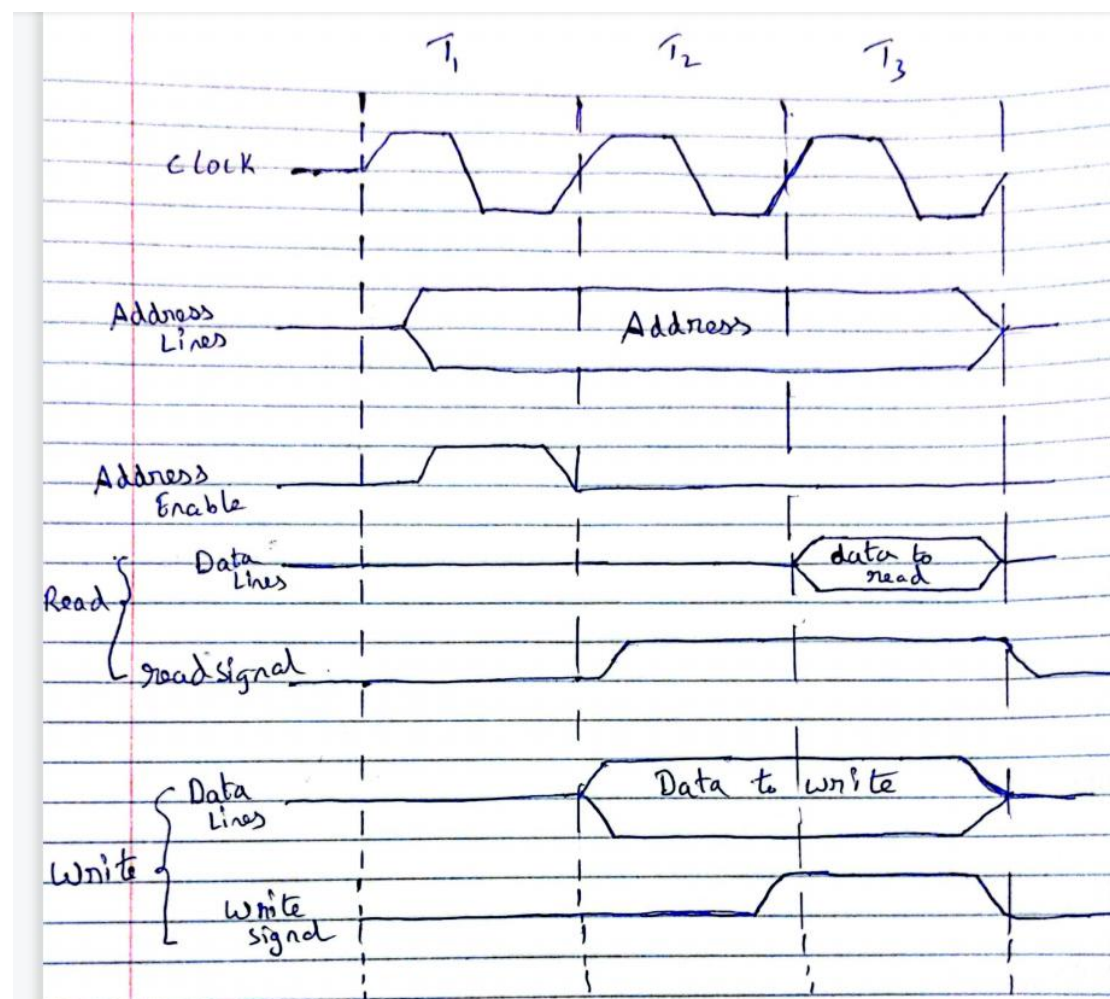 T₁ T₂ T₃
Clock
Address
Lines
Address
Address
Enable
Data
Lines
data to
read
Read
read signal
Data
Lines
Data to write
Write
Write
signal